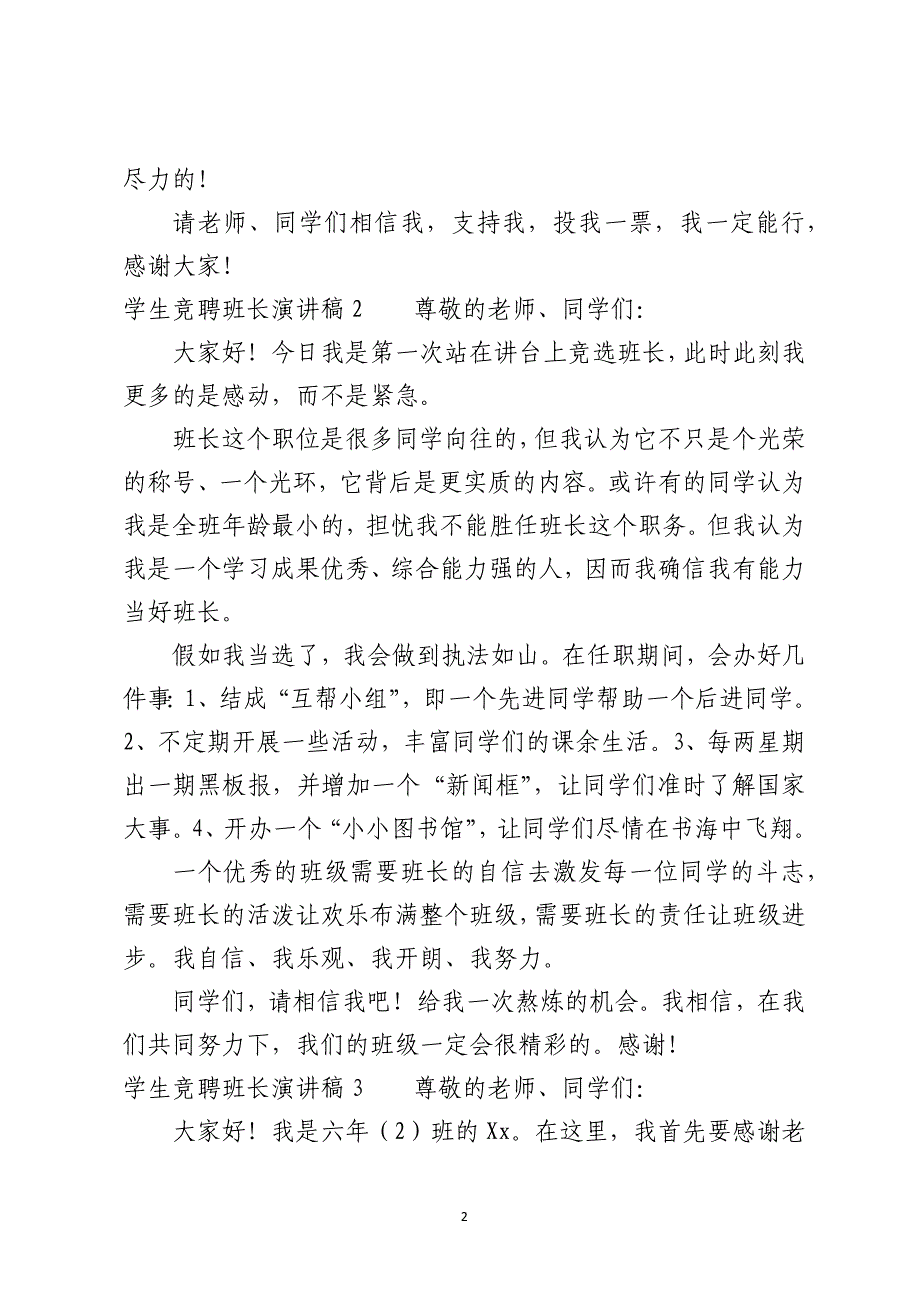 尽力的！
请老师、同学们相信我，支持我，投我一票，我一定能行，
感谢大家！
学生竞聘班长演讲稿 2　　尊敬的老师、同学们：
大家好！今日我是第一次站在讲台上竞选班长，此时此刻我
更多的是感动，而不是紧急。
班长这个职位是很多同学向往的，但我认为它不只是个光荣
的称号、一个光环，它背后是更实质的内容。或许有的同学认为
我是全班年龄最小的，担忧我不能胜任班长这个职务。但我认为
我是一个学习成果优秀、综合能力强的人，因而我确信我有能力
当好班长。
假如我当选了，我会做到执法如山。在任职期间，会办好几
件事：1、结成“互帮小组”，即一个先进同学帮助一个后进同学。
2、不定期开展一些活动，丰富同学们的课余生活。3、每两星期
出一期黑板报，并增加一个“新闻框”，让同学们准时了解国家
大事。4、开办一个“小小图书馆”，让同学们尽情在书海中飞翔。
一个优秀的班级需要班长的自信去激发每一位同学的斗志，
需要班长的活泼让欢乐布满整个班级，需要班长的责任让班级进
步。我自信、我乐观、我开朗、我努力。
同学们，请相信我吧！给我一次熬炼的机会。我相信，在我
们共同努力下，我们的班级一定会很精彩的。感谢！
学生竞聘班长演讲稿 3　　尊敬的老师、同学们：
大家好！我是六年（2）班的 Xx。在这里，我首先要感谢老
2